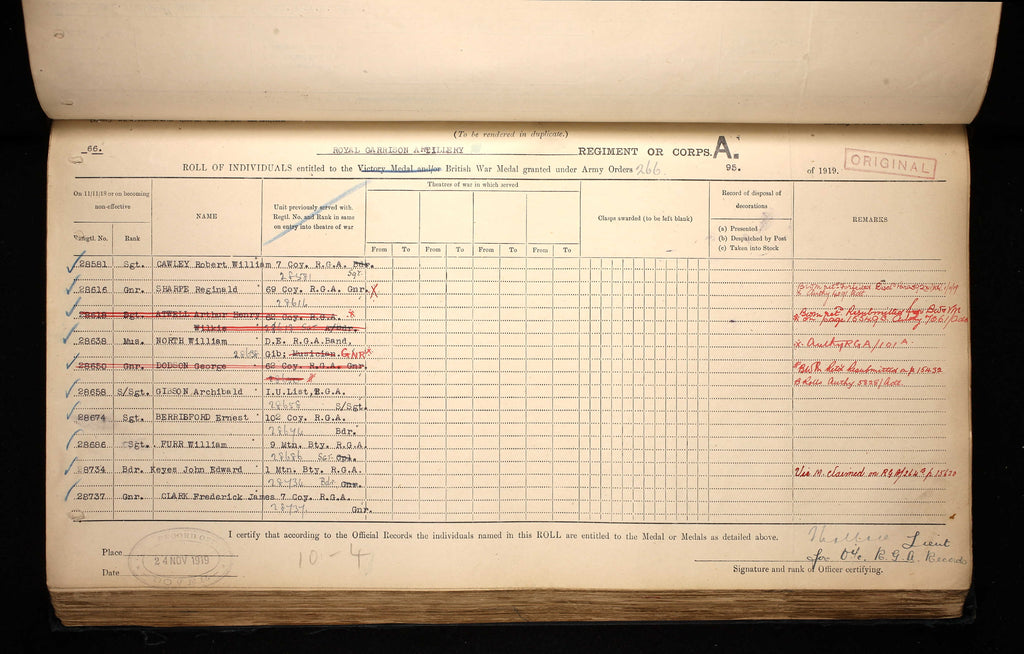 (To be rendered in duplicate.)
66.
ROYAL GARRISON ARTILLERY REGIMENT OR CORPS. A.
ROLL OF INDIVIDUALS entitled to the Victory Medal and/or British War Medal granted under Army Orders 266 95. of 1919.
ORIGINAL
On 11/11/18 or on becoming non-effective
Regtl. No. Rank
NAME
Unit previously served with. Regtl. No. and Rank in same on entry into theatre of war
Theatres of war in which served
From To From To From To From To
Clasps awarded (to be left blank)
Record of disposal of decorations
(a) Presented
(b) Despatched by Post
(c) Taken into Stock
REMARKS
28581 Sgt. CAWLEY Robert William 7 Coy. R.G.A. Bdr.
28581 Sgt.
28616 Gnr. SHARPE Reginald 69 Coy. R.G.A. Gnr. X
28616
28618 Sgt. ATWELL Arthur Henry
Wilkie
28638 Mus. NORTH William D.E. R.G.A. Band,
28638 Gib: Musician. GNR
RGA/101
28650 Gnr. DODSON George 62 Coy. R.G.A. Gnr.
28658 S/Sgt. GIBSON Archibald I.U.List, R.G.A.
28658 S/Sgt.
28674 Sgt. BERRISFORD Ernest 102 Coy. R.G.A.
28674 Bdr.
28686 Sgt. FURR William 9 Mtn. Bty. R.G.A.
28686 Cpl.
28734 Bdr. Keyes John Edward 1 Mtn. Bty. R.G.A.
28734 Bdr Gnr.
Vic M. claimed on RGA/264 p 15620
28737 Gnr. CLARK Frederick James 7 Coy. R.G.A.
28737 Gnr.
I certify that according to the Official Records the individuals named in this ROLL are entitled to the Medal or Medals as detailed above.
Place
24 NOV 1919
Date
10-4
Lieut
for O i/c. R.G.A. Records
Signature and rank of Officer certifying.